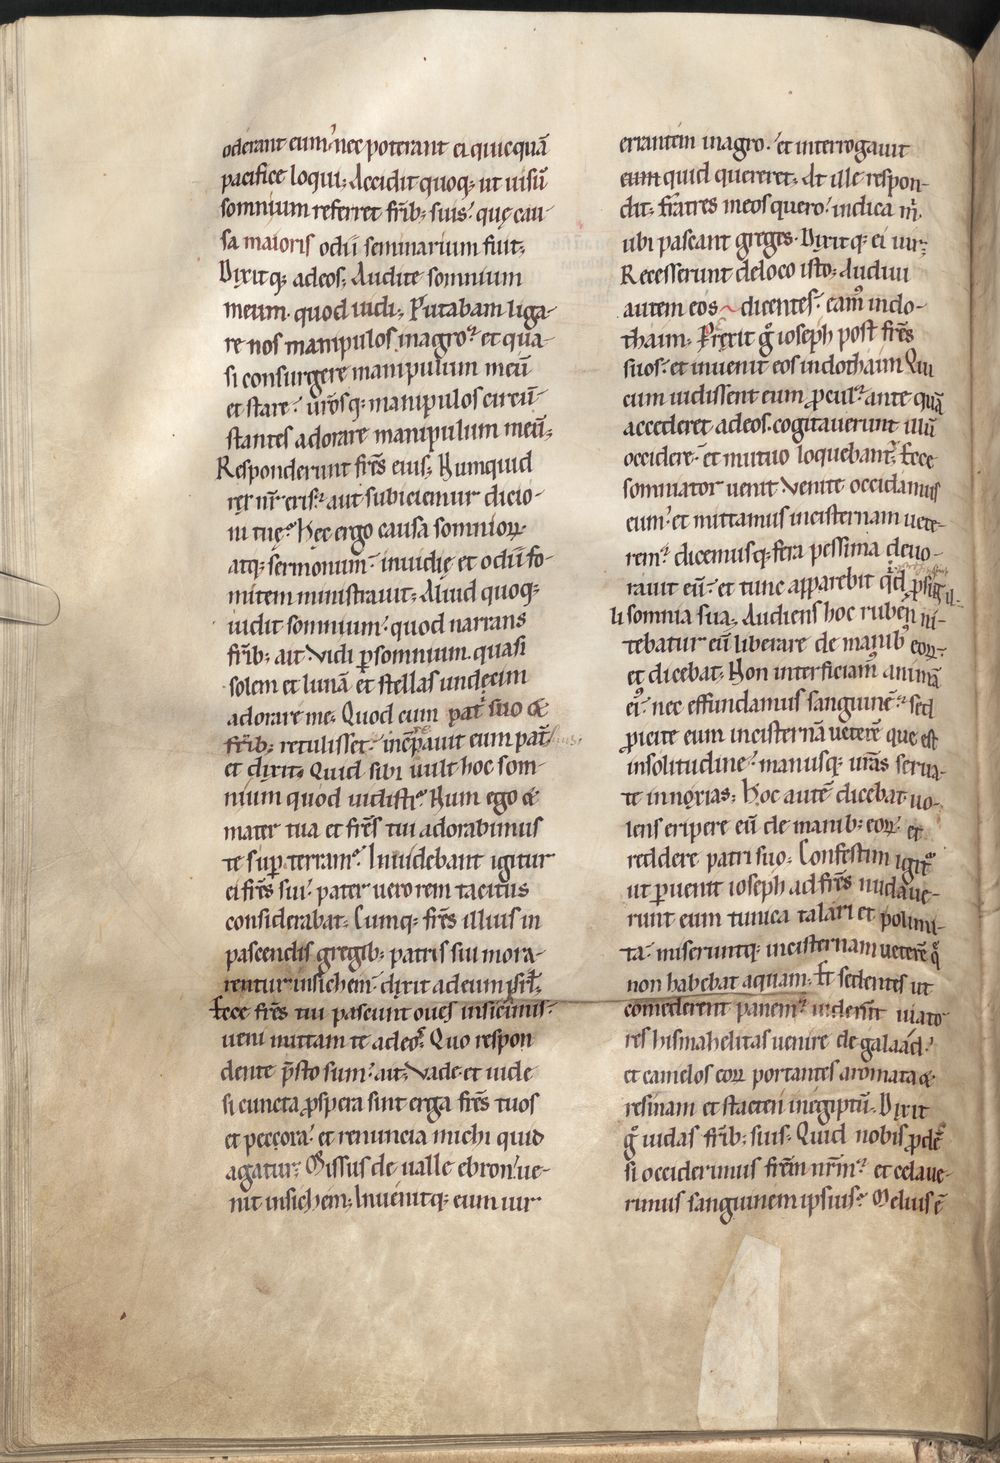 oderant eum. nec poterant ei quicquā
pacifice loqui; Accidit quoq; ut uisū
somnium referret frīb; suis. quę cau-
sa maioris odii seminarium fuit;
Dixitq; adeos; Audite somnium
meum. quod uidi; Putabam liga-
re nos manipulos inagro. et qua-
si consurgere manipulum meū
et stare. ur̄osq; manipulos circū-
stantes adorare manipulum meū;
Responderunt fr̄es eius; Numquid
rex nr̄ eris. aut subiciemur dicio-
ni tuę. Hęc ergo causa somnioꝝ
atq; sermonum. inuidię et odii fo-
mitem ministrauit; Aliud quoq;
uidit somnium. quod narrans
frīb; ait. Vidi ꝑsomnium. quasi
solem et lunā et stellas undecim
adorare me. Quod cum patri suo &
fr̄ib; retulisset. increpauit eum pat̄
et dixit; Quid sibi uult hoc som-
nium quod uidisti. Num ego &
mater tua et fr̄es tui adorabimus
te suꝑ terram. Inuidebant igitur
ei fr̄es sui. pater uero rem tacitus
considerabat; Cumq; fr̄es illius in
pascendis gregib; patris sui mora-
rentur insichem. dixit adeum isrł.
Ecce fr̄es tui pascunt oues insicimis.
ueni mittam te adeos. Quo respon
dente p̄sto sum. ait; Vade et uide
si cuncta ꝓspera sint erga fr̄es tuos
et peccora. et renuncia michi quid
agatur; Missus de ualle ebron. ue-
nit insichem; Inuenitq; eum uir
errantem inagro. et interrogauit
eum quid quereret; At ille respon-
dit; fratres meos quero. indica m̄.
ubi pascant greges. Dixitq; ei uir;
Recesserunt deloco isto; Audiui
autem eos dicentes. eamꝰ indo-
thaim; Ꝑrexit g̊ ioseph post fr̄es
suos. et inuenit eos indothaim Qui
cum uidissent eum ꝓcul. ante quā
accederet adeos. cogitauerunt illū
occidere. et mutuo loquebant̄. Ecce
somniator uenit. Venite occidamus
eum. et mittamus incisternam uete-
rem. dicemusq; fera pessima deuo-
rauit eū. et tunc apparebit qd̄ ꝓsint il-
li somnia sua; Audiens hoc ruben ni-
tebatur eū liberare de manibꝰ eoꝝ.
et dicebat; Non interficiamꝰ animā
eiꝰ. nec effundamus sanguinē. sed
ꝓicite eum incisternā ueterē que est
insolitudine. manusq; ur̄as serua-
te innoxias; Hoc autē dicebat uo-
lens eripere eū de manib; eoꝝ. et
reddere patri suo; Confestim igit̄
ut ꝑuenit ioseph ad fr̄es nudaue-
runt eum tunica talari et polimi-
ta. miseruntq; incisternam ueterē q̄
non habebat aquam; Et sedentes ut
comederent panem. uiderūt uiato
res hismahelitas uenire de galaad.
et camelos eoꝝ portantes aromata &
resinam et stacten inegiptū. Dixit
g̊ iudas fr̄ib; suis. Quid nobis ꝓdē
si occiderimus fr̄em nr̄m. et celaue-
rimus sanguinem ipsius. Melius ē